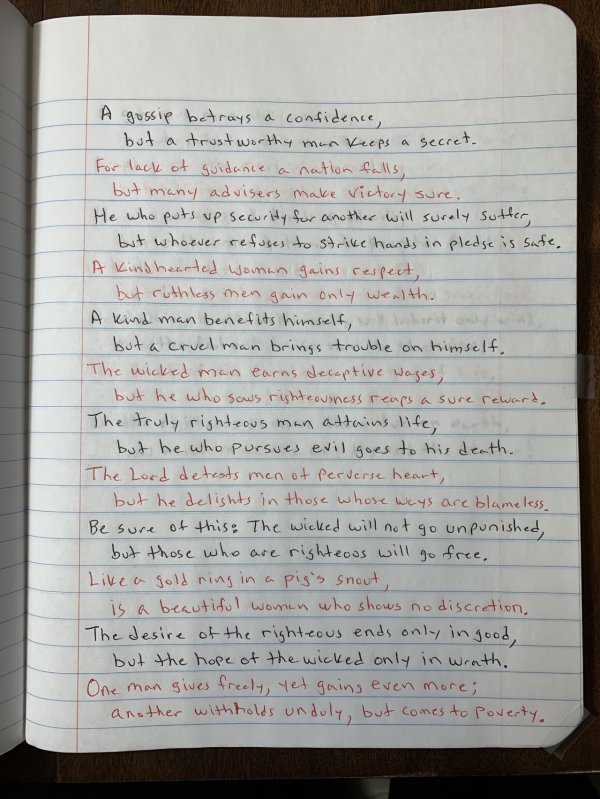 A gossip betrays a confidence,
but a trustworthy man keeps a secret.
For lack of guidance a nation falls,
but many advisers make victory sure.
He who puts up security for another will surely suffer,
but whoever refuses to strike hands in pledge is safe.
A kindhearted woman gains respect,
but ruthless men gain only wealth.
A kind man benefits himself,
but a cruel man brings trouble on himself.
The wicked man earns deceptive wages,
but he who sows righteousness reaps a sure reward.
The truly righteous man attains life,
but he who pursues evil goes to his death.
The Lord detests men of perverse heart,
but he delights in those whose ways are blameless.
Be sure of this: The wicked will not go unpunished,
but those who are righteous will go free.
Like a gold ring in a pig's snout,
is a beautiful woman who shows no discretion.
The desire of the righteous ends only in good,
but the hope of the wicked only in wrath.
One man gives freely, yet gains even more;
another withholds unduly, but comes to poverty.